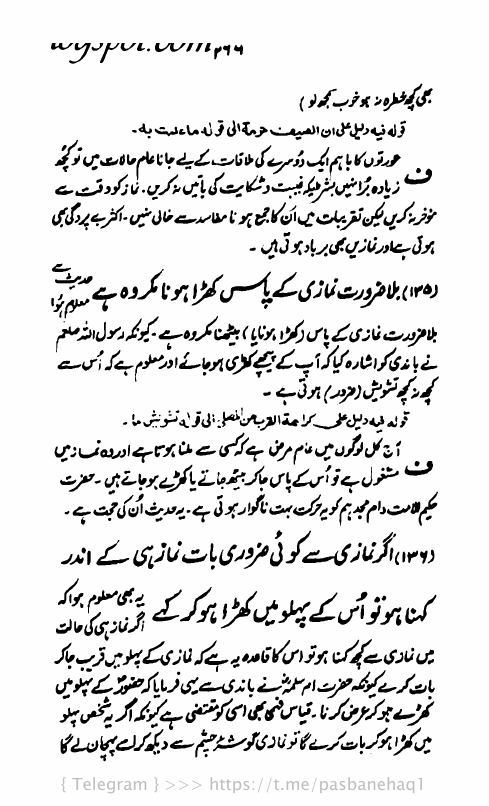 ۲۶۶
بھی کچھ خطرہ نہ ہو خوب سمجھ لو )
قولہ فیہ دلیل علی ان الضیف حرمۃ الی قولہ ماءلت بہ۔
ف عورتوں کا باہم ایک دوسرے کی ملاقات کے لیے جانا عام حالات میں تو کچھ
زیادہ بُرا نہیں بشرطیکہ غیبت و شکایت کی باتیں نہ کریں۔ نماز کو وقت سے
مؤخر نہ کریں لیکن تقریبات میں اُن کا جمع ہونا مفاسد سے خالی نہیں۔ اکثر بے پردگی بھی
ہوتی ہے اور نمازیں بھی برباد ہوتی ہیں ۔
(۱۳۵) بلا ضرورت نمازی کے پاس کھڑا ہونا مکروہ ہے حدیث سے معلوم ہوا
بلا ضرورت نمازی کے پاس (کھڑا ہونا یا) بیٹھنا مکروہ ہے ۔ کیونکہ رسول اللہ صلعم
نے باندی کو اشارہ کیا کہ آپ کے پیچھے کھڑی ہو جائے اور معلوم ہے کہ اُس سے
کچھ نہ کچھ تشویش (ضرور) ہوتی ہے ۔
قولہ فیہ دلیل علی کراھۃ القرب من المصلی الی قولہ تشویش ما ۔
ف آج کل لوگوں میں عام مرض ہے کہ کسی سے ملنا ہوتا ہے اور وہ نماز میں
مشغول ہے تو اُس کے پاس جا کر بیٹھ جاتے یا کھڑے ہو جاتے ہیں ۔ حضرت
حکیم الامت دام مجدہم کو یہ حرکت بہت ناگوار ہوتی ہے ۔ یہ حدیث اُن کی حجت ہے ۔
(۱۳۶) اگر نمازی سے کوئی ضروری بات نماز ہی کے اندر
کہنا ہو تو اُس کے پہلو میں کھڑا ہو کر کہے یہ بھی معلوم ہوا کہ اگر نماز ہی کی حالت
میں نمازی سے کچھ کہنا ہو تو اس کا قاعدہ یہ ہے کہ نمازی کے پہلو میں قریب جا کر
بات کرے کیونکہ حضرت ام سلمہؓ نے باندی سے یہی فرمایا کہ حضورؐ کے پہلو میں
کھڑے ہو کر عرض کرنا ۔ قیاس فقہی بھی اسی کو مقتضی ہے کیونکہ اگر یہ شخص پہلو
میں کھڑا ہو کر بات کرے گا تو نمازی گوشۂ چشم سے دیکھ کر اسے پہچان لے گا
{ Telegram } >>> https://t.me/pasbanehaq1